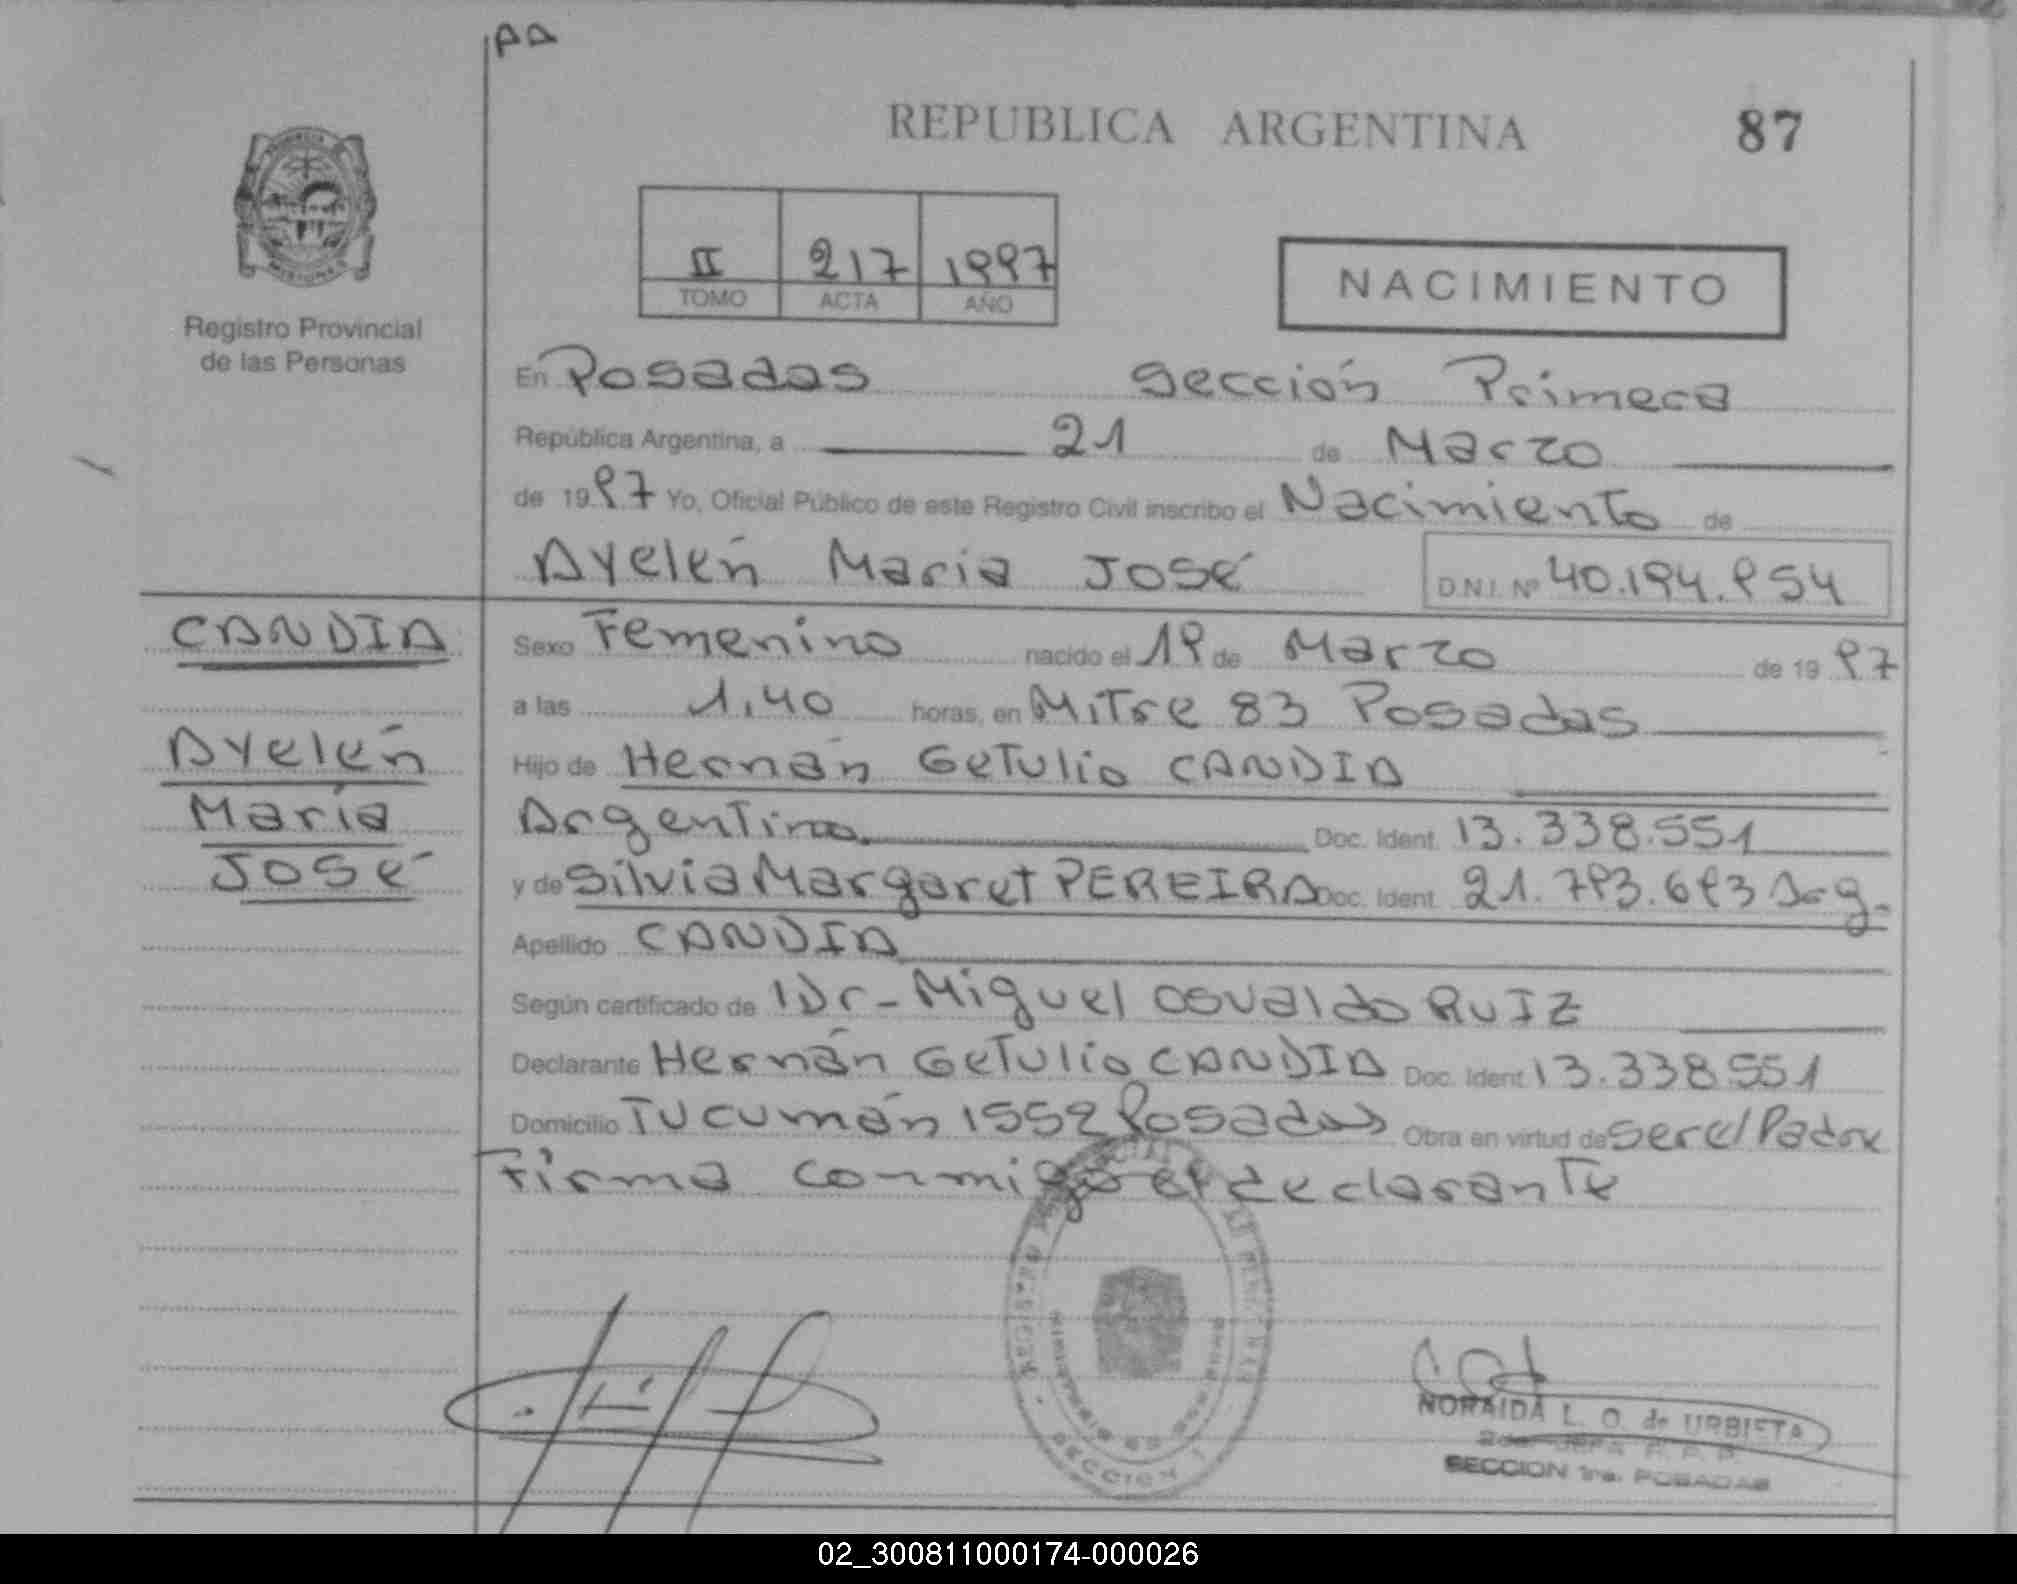 AA
REPUBLICA ARGENTINA
87
II 217 1997
TOMO ACTA AÑO
NACIMIENTO
Registro Provincial
de las Personas
En Posadas Sección Primera
República Argentina, a 21 de Marzo
de 1997 Yo, Oficial Público de este Registro Civil inscribo el Nacimiento de
Ayelén Maria José D.N.I. Nº 40.194.954
CANDIA
Ayelén
María
José
Sexo Femenino nacido el 19 de Marzo de 1997
a las 1,40 horas, en Mitre 83 Posadas
Hijo de Hernán Getulio CANDIA
Argentino Doc. Ident. 13.338.551
y de Silvia Margaret PEREIRA Doc. Ident. 21.793.693 Arg.
Apellido CANDIA
Según certificado de Dr- Miguel Osvaldo RUIZ
Declarante Hernán Getulio CANDIA Doc. Ident 13.338.551
Domicilio Tucumán 1552 Posadas Obra en virtud de ser el Padre
Firma conmigo el declarante
SECCION 1
NORAIDA L. O. de URBIETA
SECCION 1ra. POSADAS
02_300811000174-000026